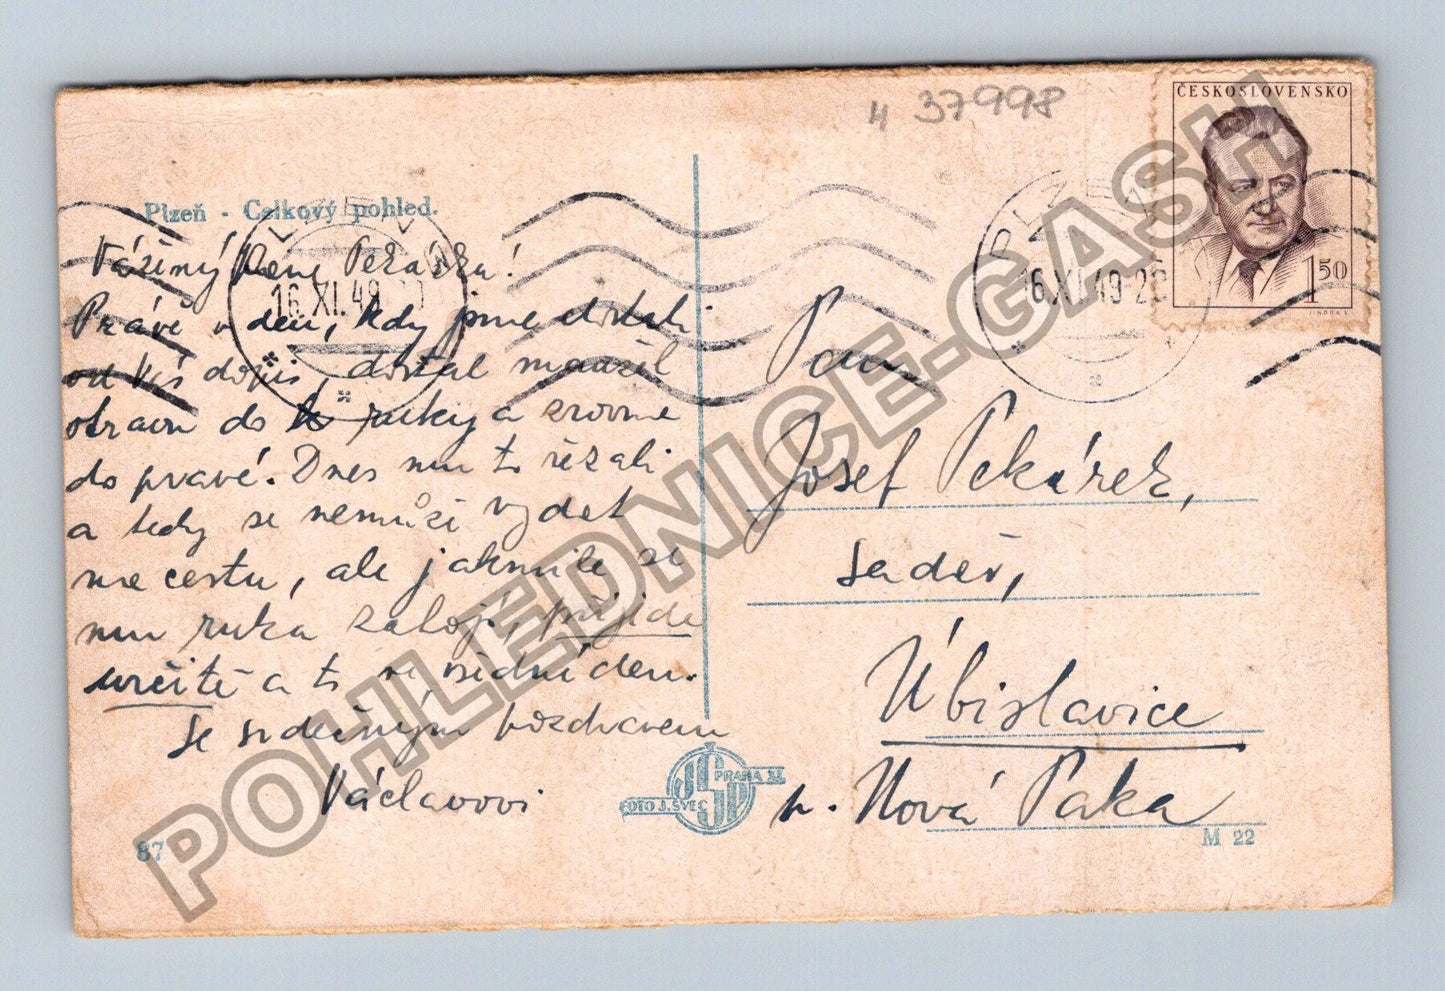 4 37998
ČESKOSLOVENSKO
1 50
JINDRA S.
PLZEŇ
16.XI.49-20
PLZEŇ
16.XI.49
Plzeň - Celkový pohled.
Vážený Pane Pekárku!
Právě v den, kdy jsme dostali
od Vás dopis, dostal manžel
otravu do ruky a zrovna
do pravé. Dnes mu to řezali
a tedy se nemůže vydat
na cestu, ale jakmile se
mu ruka zahojí, přijde
určitě a to ve všední den.
Se srdečným pozdravem
Václavovi
Pan
Josef Pekárek,
Úbislavice
p. Nová Paka
FOTO J. ŠVEC PRAHA XI.
JŠP
87
M 22
POHLEDNICE-GASH